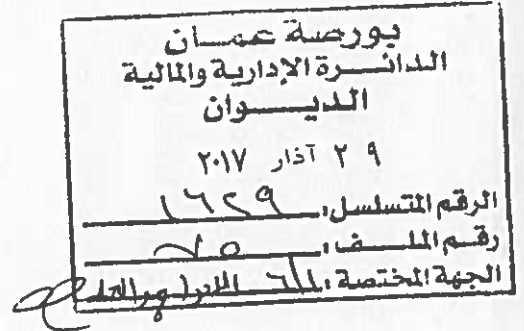 بورصة عمـــان
الدائـــرة الإدارية والمالية
الديـــوان
٢٩ آذار ٢٠١٧
الرقم المتسلسل: ١٦٢٩
رقـم الملـــف:
الجهة المختصة: